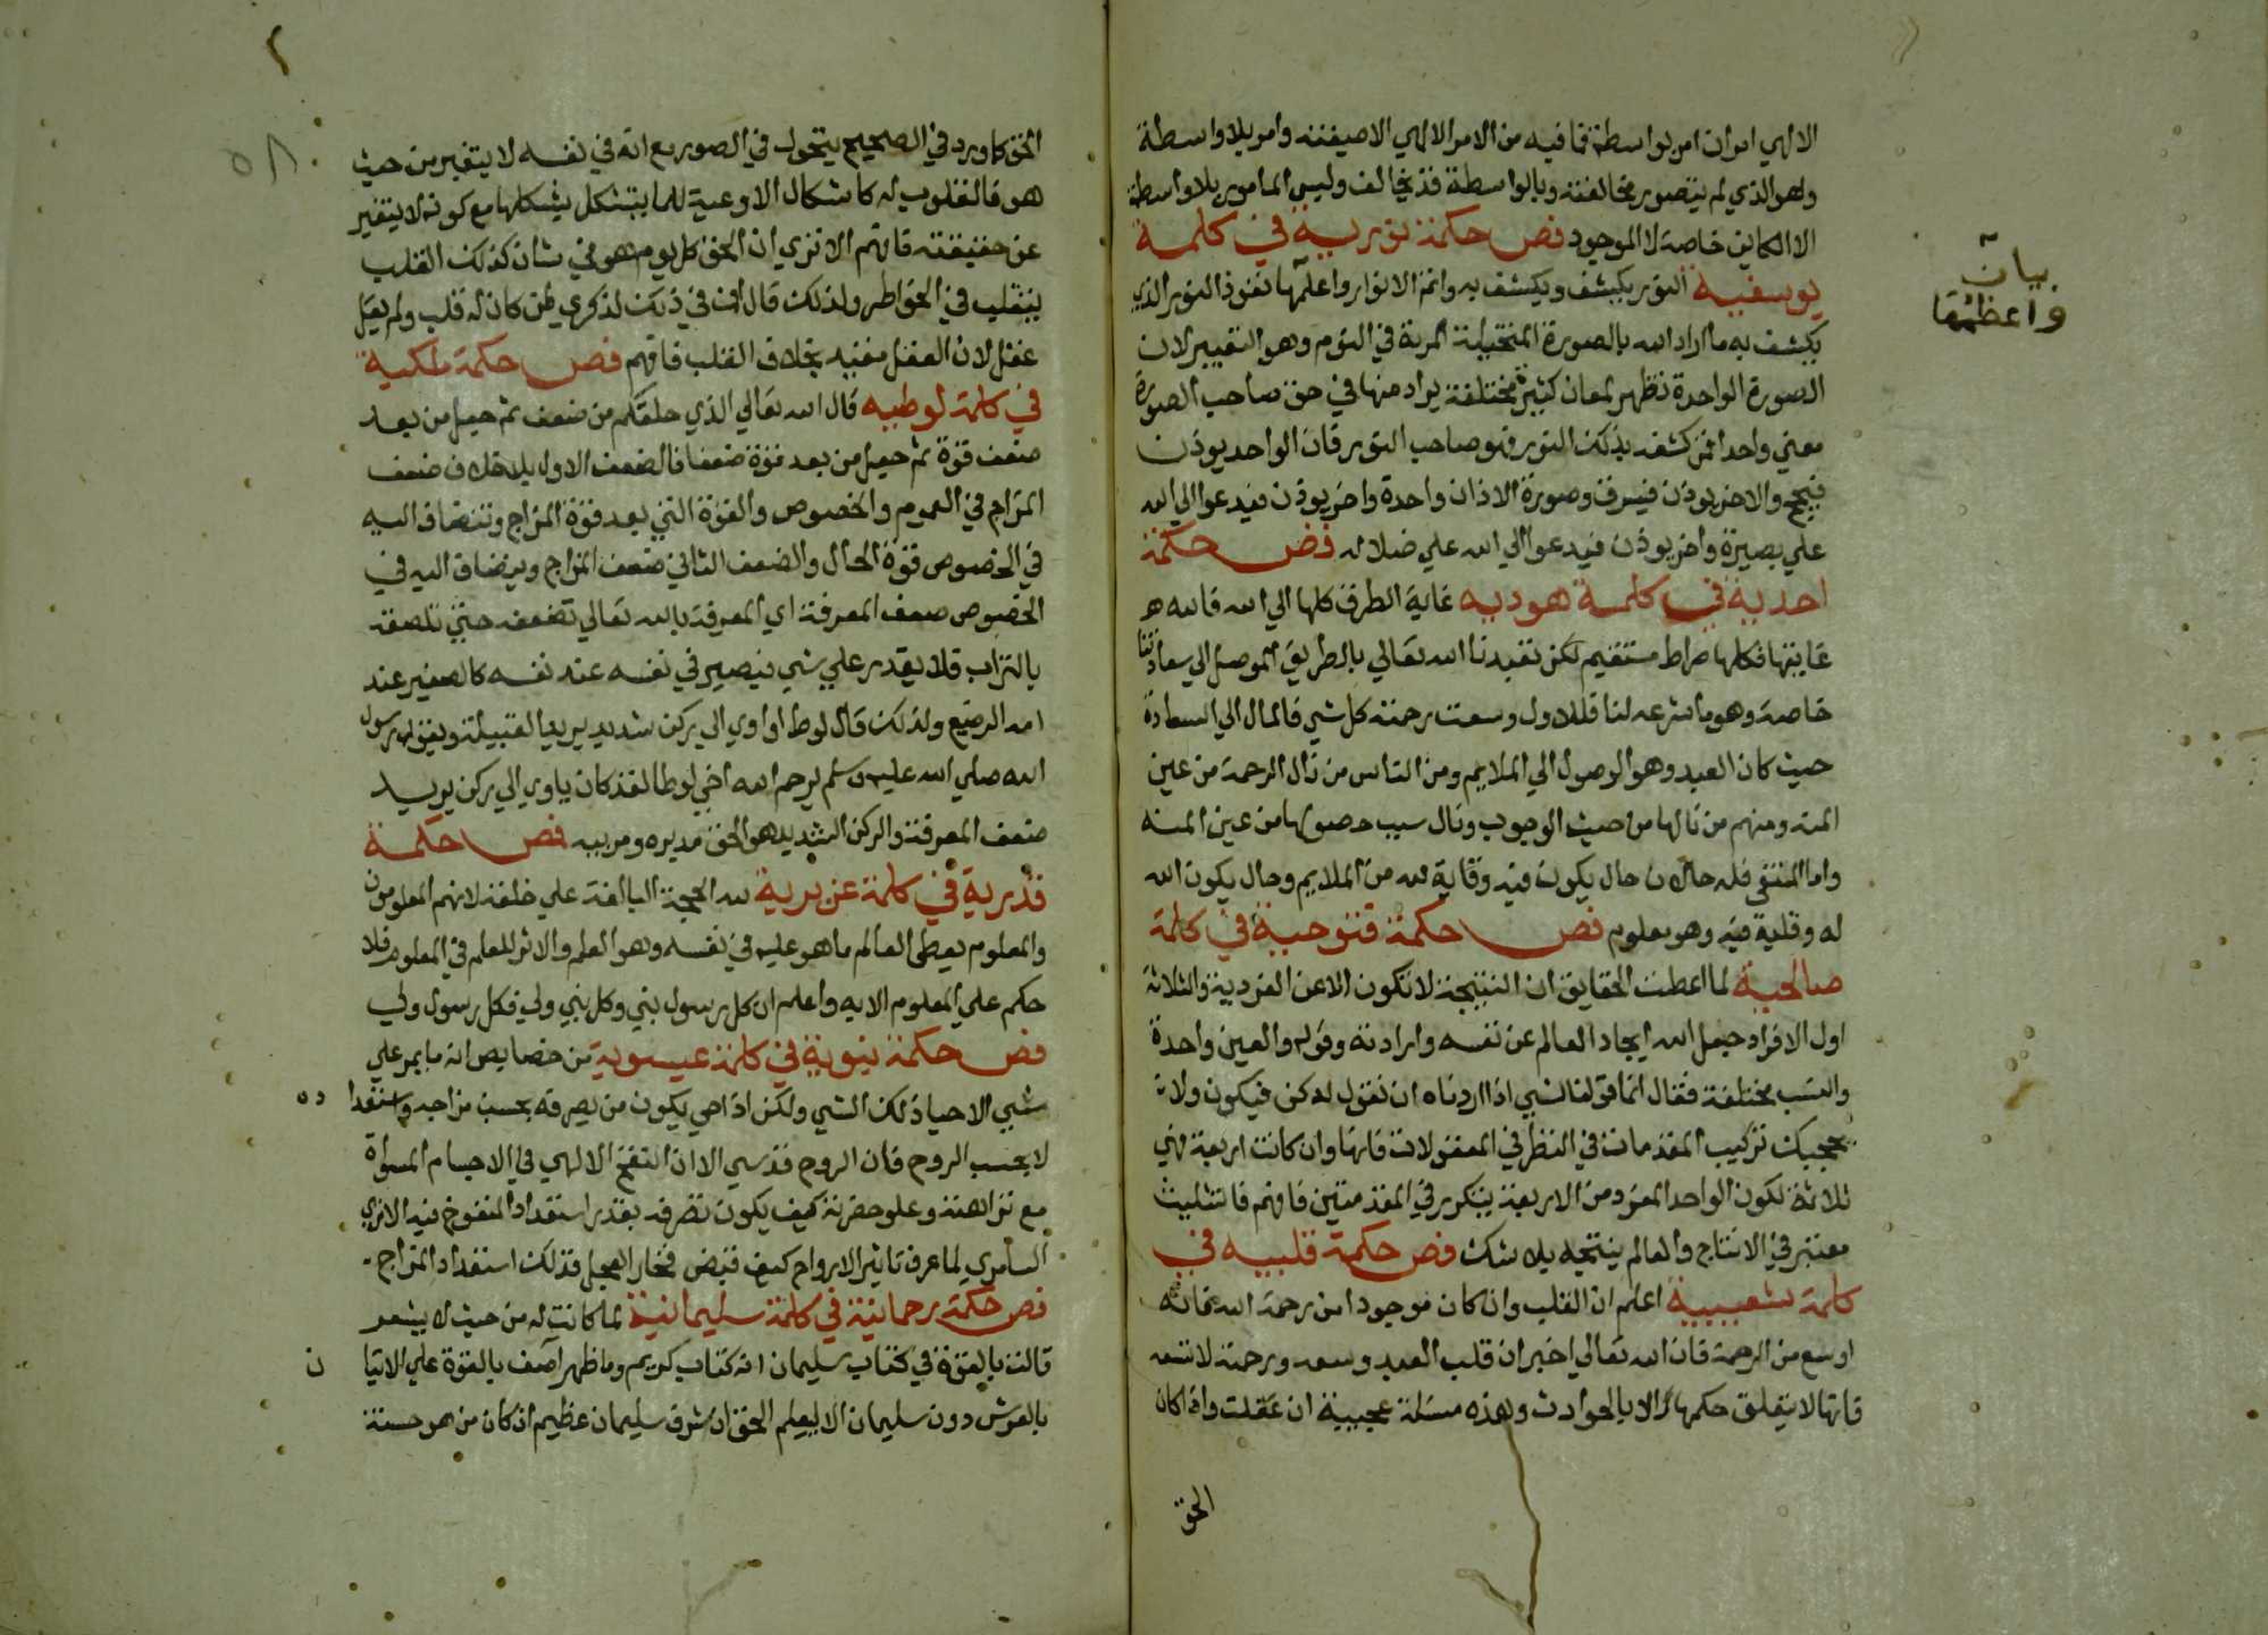 الالهي امران امر بواسطة فما فيه من الامر الالهي الا صيغته وامر بلا واسطة
وهو الذي لم يتصور مخالفته وبالواسطة قد يخالف وليس المامور بلا واسطة
الا الكاين خاصة لا الموجود فص حكمة نورية في كلمة
يوسفية النور يكشف ويكشف به واتم الانوار واعظمها نفوذا النور الذي
يكشف به ما اراد الله بالصورة المتخيلة المرية في النوم وهو التعبير لان
الصورة الواحدة تظهر لمعان كثيرة مختلفة يراد منها في حق صاحب الصورة
معني واحدا فمن كشفه بذلك النور فهو صاحب النور فان الواحد يوذن
فيحج والاخر يوذن فيسرق وصورة الاذان واحدة واخر يوذن فيدعوا الي الله
علي بصيرة واخر يوذن فيدعوا الي الله علي ضلاله فص حكمة
احدية في كلمة هودية غاية الطرق كلها الي الله فالله هو
غايتها فكلها صراط مستقيم لكن تعبدنا الله تعالي بالطريق الموصل الي سعادتنا
خاصة وهو ما شرعه لنا فللاول وسعت رحمته كل شي فالمال الي السعادة
حيث كان العبد وهو الوصول الي الملايم ومن الناس من نال الرحمة من عين
المنه ومنهم من نالها من حيث الوجوب ونال سبب حصولها من عين المنه
واما المتقي فله حالان حال يكون فيه وقاية لله من الملايم وحال يكون الله
له وقاية فيه وهو معلوم فص حكمة فتوحية في كلمة
صالحية لما اعطت الحقايق ان النتيجة لا تكون الا عن الفردية والثلاثة
اول الافراد جعل الله ايجاد العالم عن نفسه وارادته وقوله والعين واحدة
والنسب مختلفة فقال انما قولنا لشي اذا اردناه ان نقول له كن فيكون ولا
يحجبك تركيب المقدمات في النظر في المعقولات فانها وان كانت اربعة فهي
ثلاثة لكون الواحد المفرد من الاربعة يتكرر في المقدمتين فافهم فالتثليث
معتبر في الانتاج والعالم نتيجه بلا شك فص حكمة قلبيه في
كلمة شعيبية اعلم ان القلب وان كان موجودا من رحمة الله فانه
اوسع من الرحمة فان الله تعالي اخبر ان قلب العبد وسعه ورحمته لا تسعه
فانها لا يتعلق حكمها الا بالحوادث وهذه مسئلة عجيبة ان عقلت واذا كان
الحق
بيان
واعظمها
الحق كما ورد في الصحيح يتحول في الصور مع انه في نفسه لا يتغير من حيث
هو فالقلوب له كاشكال الاوعية للما يتشكل بشكلها مع كونه لا يتغير
عن حقيقته فافهم الا تري ان الحق كل يوم هو في شان كذلك القلب
يتقلب في الخواطر ولذلك قال ان في ذلك لذكري لمن كان له قلب ولم يقل
عقل لان العقل مقيد بخلاف القلب فافهم فص حكمة ملكية
في كلمة لوطيه قال الله تعالي الذي خلقكم من ضعف ثم جعل من بعد
ضعف قوة ثم جعل من بعد قوة ضعفا فالضعف الاول بلا خلاف ضعف
المزاج في العموم والخصوص والقوة التي بعد قوة المزاج وتنضاف اليه
في الخصوص قوة الحال والضعف الثاني ضعف المزاج وينضاف اليه في
الخصوص ضعف المعرفة اي المعرفة بالله تعالي تضعفه حتي تلصقه
بالتراب فلا يقدر علي شي فيصير في نفسه عند نفسه كالصغير عند
امه الرضيع ولذلك قال لوط او اوي الي ركن شديد يريد القبيلة ويقول رسول
الله صلي الله عليه وسلم يرحم الله اخي لوطا لقد كان ياوي الي ركن يريد
ضعف المعرفة والركن الشديد هو الحق مدبره ومربيه فص حكمة
قدرية في كلمة عزيرية لله الحجة البالغة علي خلقه لانهم المعلومون
والمعلوم يعطي العالم ما هو عليه في نفسه وهو العلم والاثر للعلم في المعلوم فلا
حكم علي المعلوم الا به واعلم ان كل رسول نبي وكل نبي ولي فكل رسول ولي
فص حكمة نبوية في كلمة عيسوية من خصايص انه ما يمر علي
شي الا حيا ذلك الشي ولكن اذا حي يكون من تصرفه بحسب مزاجه واستعدا ده
لا بحسب الروح فان الروح قدسي الا ان النفخ الالهي في الاجسام المسواة
مع نزاهته وعلو حضرته كيف يكون تصرفه بقدر استعداد المنفوخ فيه الا تري
السامري لما عرف تاثير الارواح كيف قبض فخار العجل فذلك استعداد المزاج
فص حكمة رحمانية في كلمة سليمانية لما كانت له من حيث لا يشعر
قالت بالقوة في كتاب سليمان انه كتاب كريم وما ظهر آصف بالقوة علي الاتيا ن
بالعرش دون سليمان الا ليعلم الحق ان شرف سليمان عظيم ان كان من هو حسنة
٥٨